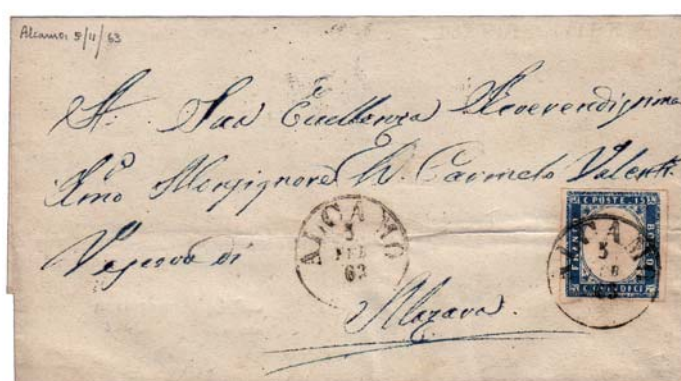 Alcamo 5/11/63
A. Sua Eccellenza Reverendissima
Illmo Monsignore D. Carmelo Valenti
Vescovo di
Mazara
ALCAMO
5
FEB
63
C. POSTE 15
FRANCO
BOLLO
C. QUINDICI
ALCAMO
5
EB
63